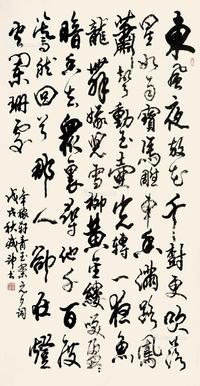 東風夜放花千樹更吹落
星如雨寶馬雕車香滿路鳳
簫聲動玉壺光轉一夜魚
龍舞蛾兒雪柳黃金縷笑語盈盈
暗香去衆裏尋他千百度
驀然回首那人卻在燈
火闌珊處
辛稼軒青玉案元夕詞
戊戌秋